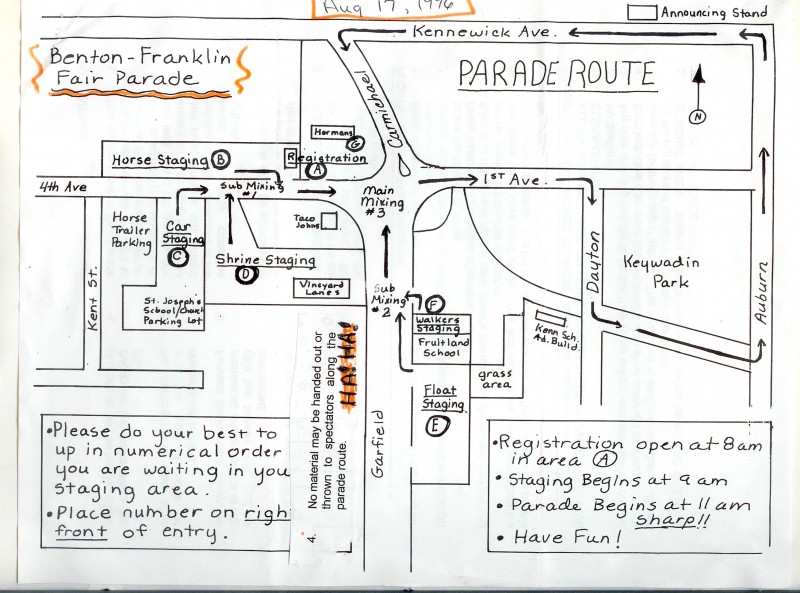 Aug 17, 1996
Announcing Stand
Kennewick Ave.
Benton-Franklin
Fair Parade
PARADE ROUTE
N
Carmichael
Hermans
G
Horse Staging B
Registration
A
4th Ave
Sub Mixing
#1
Main
Mixing
#3
1ST Ave.
Horse
Trailer
Parking
Car
Staging
C
Taco
Johns
Shrine Staging
D
Vineyard
Lanes
Kent St.
St. Joseph's
School/Church
Parking Lot
Sub
Mixing
#2
F
Walkers
Staging
Fruitland
School
Kenn Sch.
Ad. Build.
grass
area
Float
Staging
E
Garfield
Dayton
Keywadin
Park
Auburn
•Please do your best to
up in numerical order
you are waiting in you
staging area.
•Place number on righ
front of entry.
4. No material may be handed out or
thrown to spectators along the
parade route. HA! HA!
•Registration open at 8am
in area A
• Staging Begins at 9 am
• Parade Begins at 11 am
Sharp!!
• Have Fun!